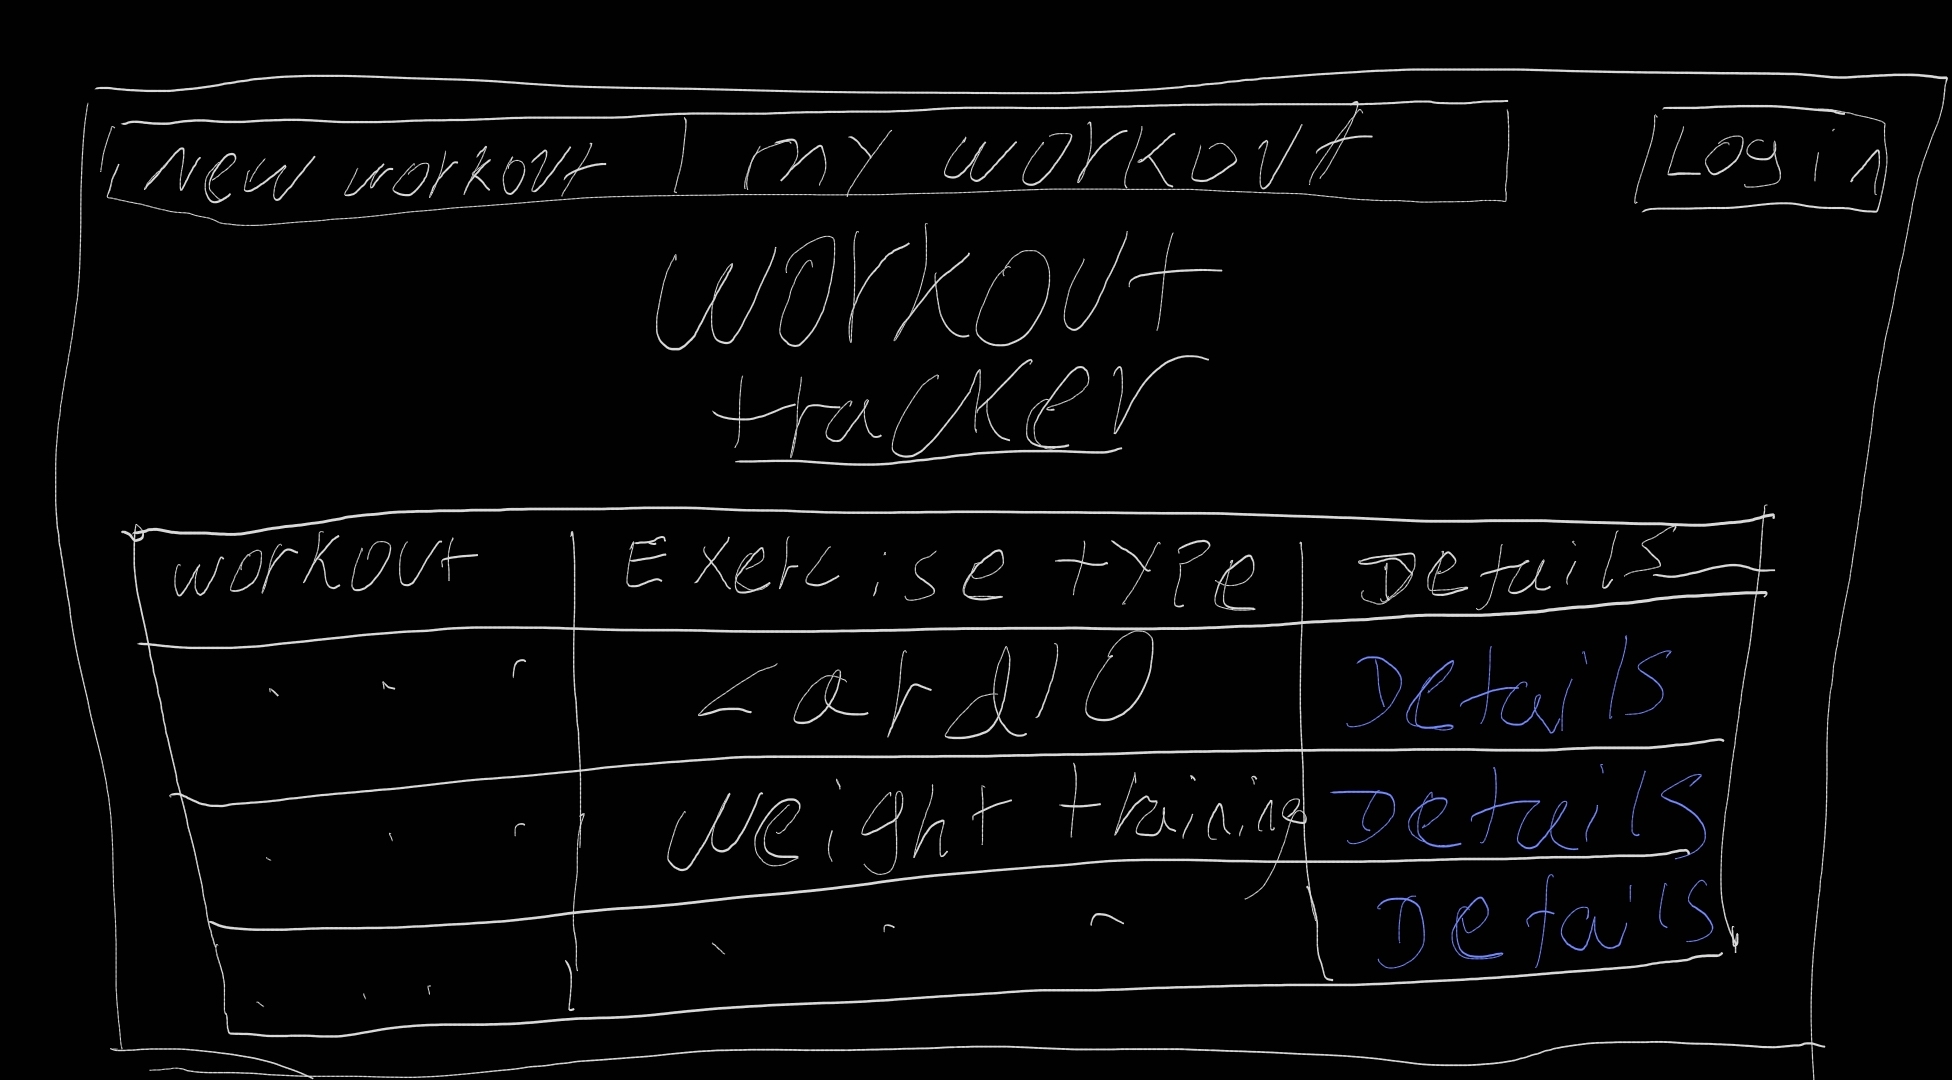 New workout my workout Login
workout
tracker
workout Exercise type Details
. . . cardio Details
. . . weight training Details
. . . . . . Details